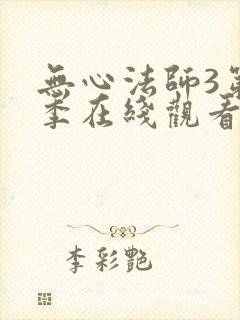 無心法師3第
季在綫觀看
李彩艷